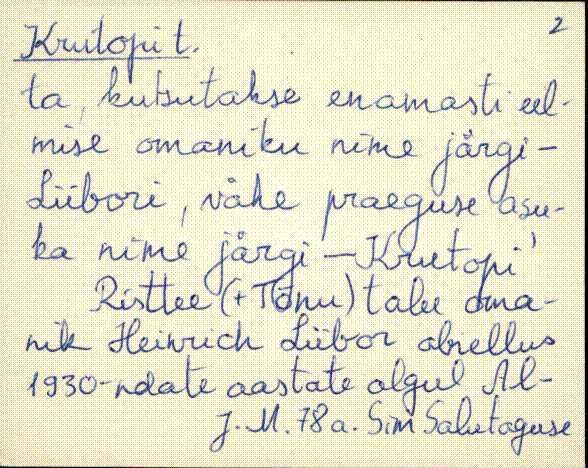 2
Krutopi t.
ta, kutsutakse enamasti eel-
mise omaniku nime järgi –
Liibori, vähe praeguse asu-
ka nime järgi – Krutopi'
Risttee (+ Tõnu) talu oma-
nik Heinrich Liibor abiellus
1930-ndate aastate algul Al-
J. M. 78 a. Sim Salutaguse